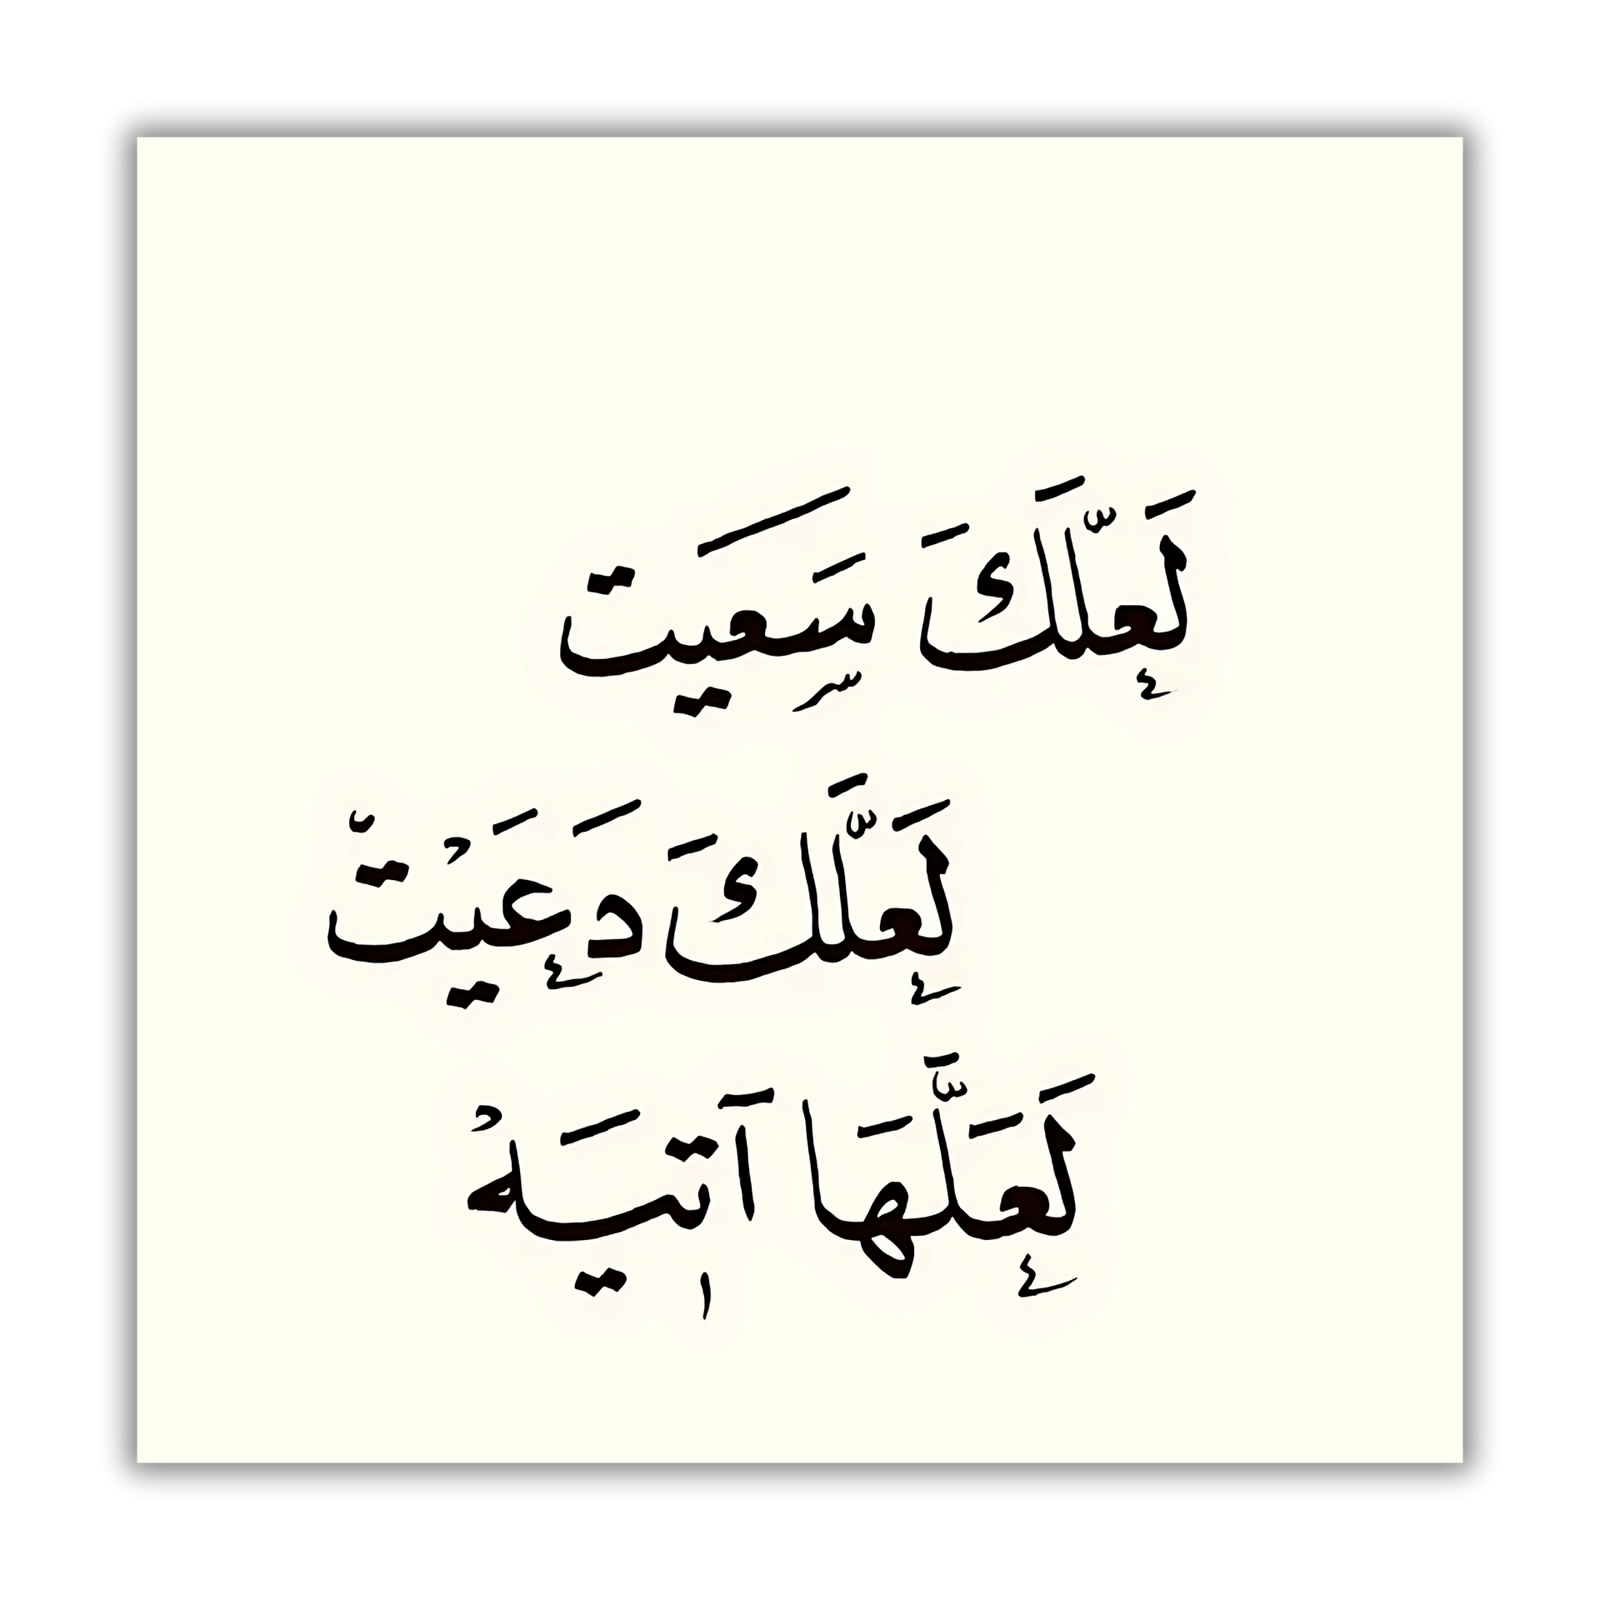 لَعَلَّكَ سَعَيت
لَعَلَّكَ دَعَيْت
لَعَلَّهَا آتِيَهْ